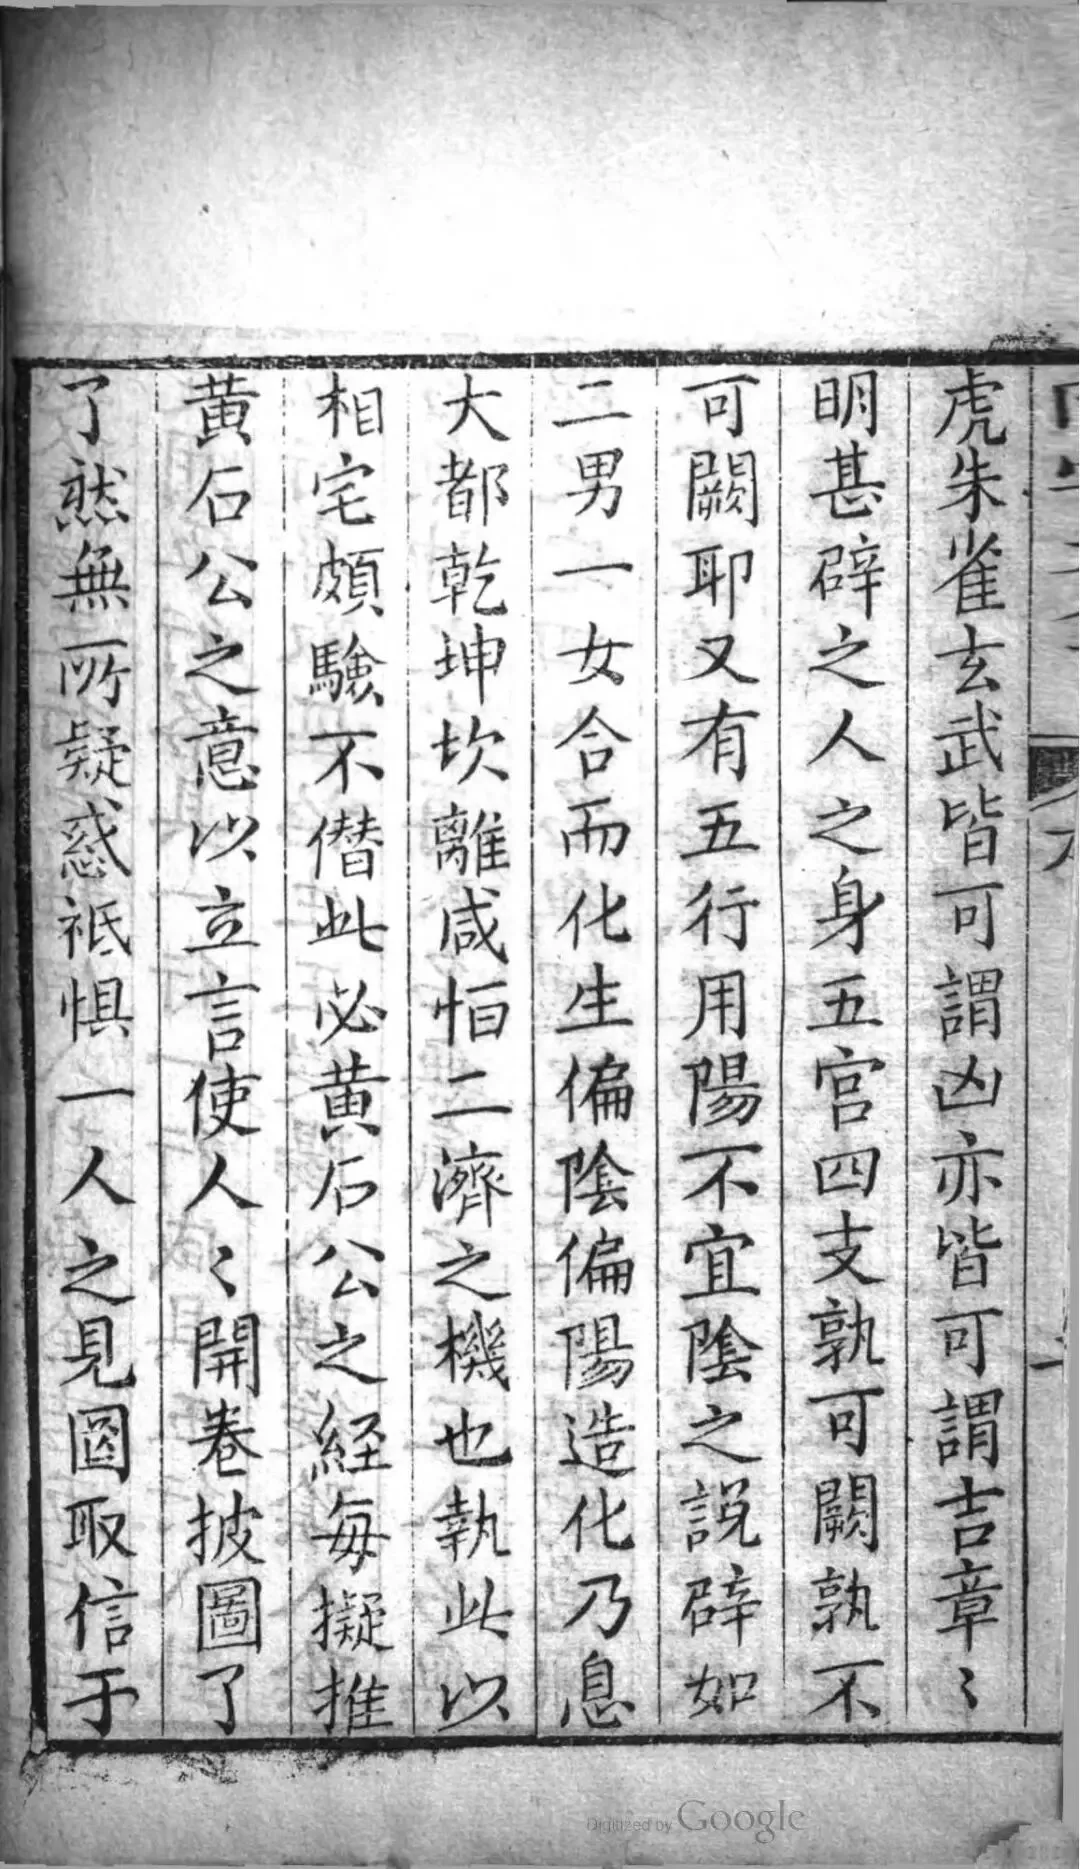 虎朱雀玄武皆可謂凶亦皆可謂吉章〻
明甚辟之人之身五官四支孰可闕孰不
可闕耶又有五行用陽不宜陰之說辟如
二男一女合而化生偏陰偏陽造化乃息
大都乾坤坎離咸恒二濟之機也執此以
相宅頗驗不僭此必黄石公之経每擬推
黄石公之意以立言使人〻開卷披圖了
了然無所疑惑祇惧一人之見圖取信于
Digitized by Google